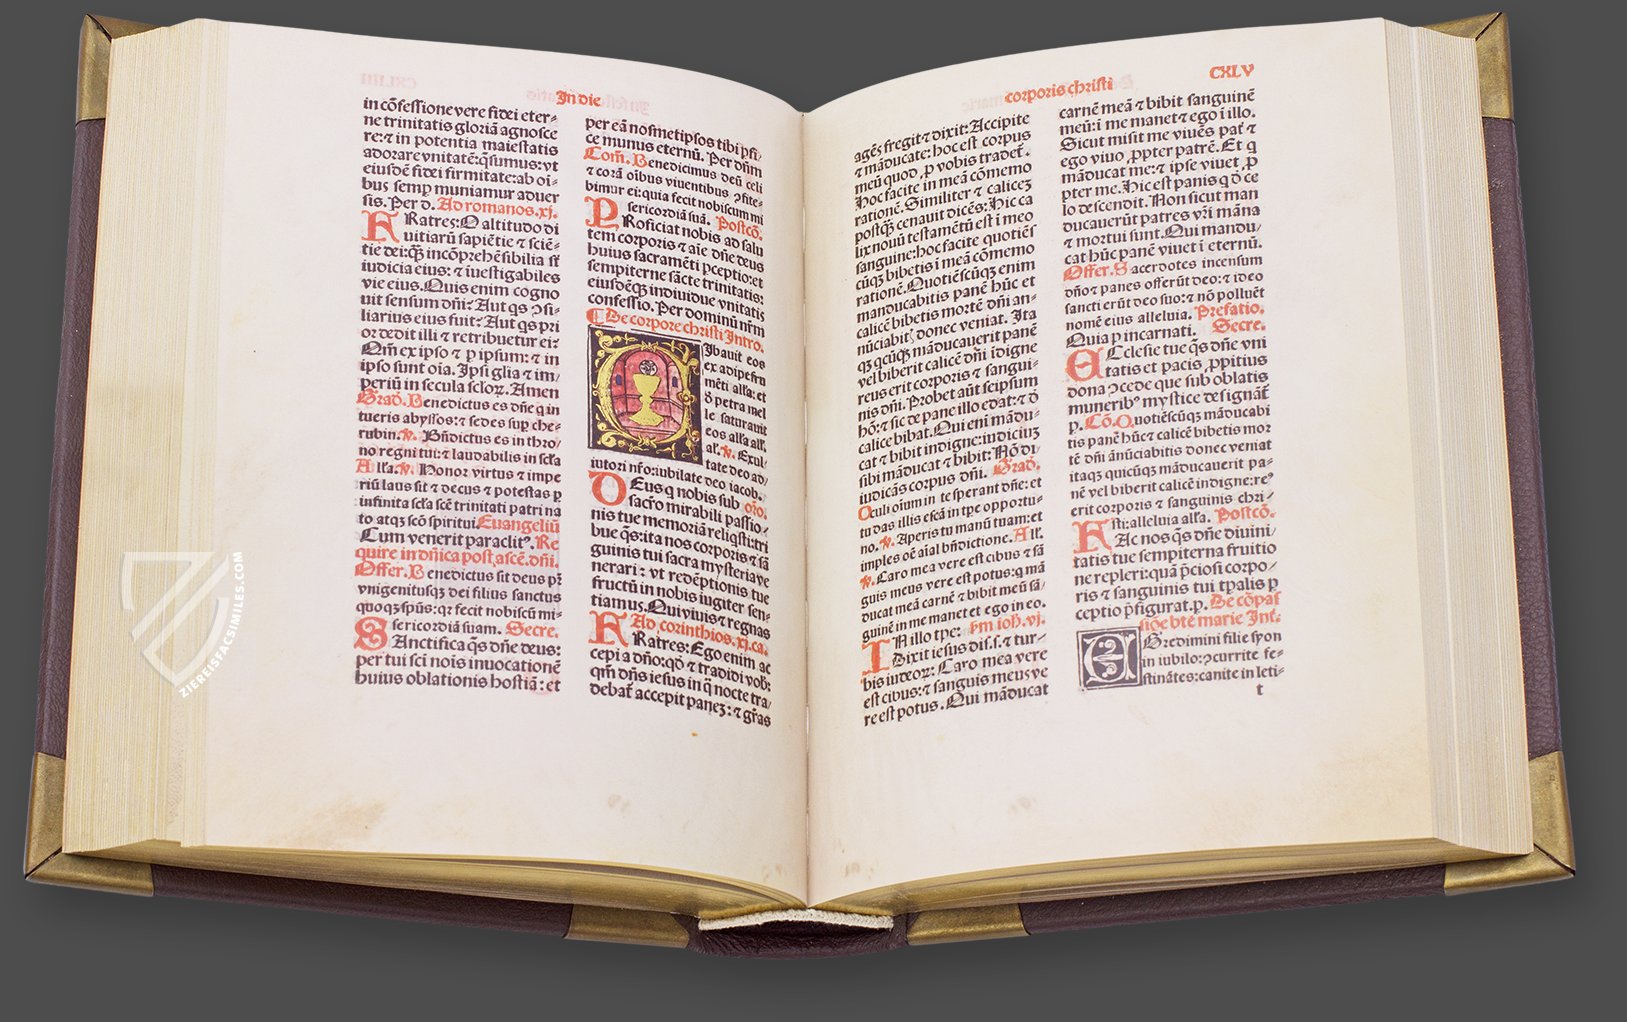 In die
in cōfessione vere fidei eter⸗
ne trinitatis gloriā agnosce
re: ⁊ in potentia maiestatis
adorare vnitatē: q̄sumus: vt
eiusdē fidei firmitate: ab oī⸗
bus semꝑ muniamur aduer
sis. Per d. Ad romanos. xj.
FRatres: O altitudo di
uitiarū sapiētie ⁊ sciē⸗
tie dei: q̄ꝫ incōprehēsibilia st̄
iudicia eius: ⁊ īuestigabiles
vie eius. Quis enim cogno
uit sensum dn̄i: Aut qs ↄsi⸗
liarius eius fuit: Aut qs pri
or dedit illi ⁊ retribuetur ei:
Qm̄ ex ipso ⁊ ꝑ ipsum: ⁊ in
ipso sunt oīa. Ipsi glīa ⁊ im⸗
periū in secula sclōꝝ. Amen
Grad. Benedictus es dn̄e q in
tueris abyssos: ⁊ sedes suꝑ che⸗
rubin. ℣. Bn̄dictus es in thro⸗
no regni tui: ⁊ laudabilis in scl̄a
Alla. ℣. Honor virtus ⁊ impe
riū laus sit ⁊ decus ⁊ potestas ꝑ
infinita scl̄a scē trinitati patri na
to atqꝫ scō spiritui. Euangeliū
Cum venerit paraclitꝰ. Re
quire in dn̄ica post ascē. dn̄i.
Offer. Benedictus sit deus pr̄
vnigenitusqꝫ dei filius sanctus
quoqꝫ sp̄us: qꝛ fecit nobiscū mi⸗
sericordiā suam. Secre.
SAnctifica q̄s dn̄e deus:
per tui scī nōis inuocationē
huius oblationis hostiā: et
per eā nosmetipsos tibi ꝑfi⸗
ce munus eternū. Per dn̄m
Com̄. Benedicimus deū celi
⁊ corā oībus viuentibus ↄfite⸗
bimur ei: quia fecit nobiscum mi
sericordiā suā. Postcō.
PRoficiat nobis ad salu
tem corporis ⁊ aīe dn̄e deus
huius sacramēti ꝑceptio: et
sempiterne sācte trinitatis:
eiusdēqꝫ indiuidue vnitatis
confessio. Per dominū nr̄m
De corpore christi Intro.
CIbauit eos
ex adipe fru
mēti alla: et
ō petra mel
le saturauit
eos alla all.
al. ℣. Exul⸗
tate deo ad⸗
iutori nr̄o: iubilate deo iacob.
DEus q nobis sub or̄o.
sacr̄o mirabili passio⸗
nis tue memoriā reliqsti: tri
bue q̄s: ita nos corporis ⁊ sā
guinis tui sacra mysteria ve
nerari: vt redēptionis tue
fructū in nobis iugiter sen⸗
tiamus. Qui viuis ⁊ regnas
Ad corinthios. xj. ca.
FRatres: Ego enim ac
cepi a dn̄o: qō ⁊ tradidi vob:
qm̄ dn̄s iesus in q̄ nocte tra⸗
debat̄ accepit panē: ⁊ gr̄as
corporis christi
CXLV
agēs fregit ⁊ dixit: Accipite
⁊ māducate: hoc est corpus
meū quod ꝓ vobis tradet̄.
Hoc facite in meā cōmemo
rationē. Similiter ⁊ calicē
postq̄ꝫ cenauit dicēs: Hic ca
lix nouū testamētū est ī meo
sanguine: hoc facite quotiēs
cūqꝫ bibetis ī meā cōmemo
rationē. Quotiēscūqꝫ enim
manducabitis panē hūc et
calicē bibetis mortē dn̄i an⸗
nūciabit̄: donec veniat. Ita
qꝫ qcūqꝫ māducauerit panē
vel biberit calicē dn̄i īdigne
reus erit corporis ⁊ sangui⸗
nis dn̄i. Probet aūt seipsum
hō: ⁊ sic de pane illo edat: ⁊ ō
calice bibat. Qui enī mādu⸗
cat ⁊ bibit indigne: iudiciū
sibi māducat ⁊ bibit: Nō di⸗
iudicās corpus dn̄i. Grad.
Oculi oīum in te sperant dn̄e: et
tu das illis escā in tp̄e oportu⸗
no. ℣. Aperis tu manū tuam: et
imples oē aīal bn̄dictione. All.
℣. Caro mea vere est cibus ⁊ sā
guis meus vere est potus: q mā
ducat meā carnē ⁊ bibit meū sā⸗
guinē in me manet et ego in eo.
IN illo tp̄e: Fm ioh. vj.
Dixit iesus dis. s. ⁊ tur⸗
bis iudeoꝝ: Caro mea vere
est cibus: ⁊ sanguis meus ve
re est potus. Qui māducat
carnē meā ⁊ bibit sanguinē
meū: ī me manet ⁊ ego ī illo.
Sicut misit me viuēs pat̄ ⁊
ego viuo ꝓpter patrē. Et q
māducat me: ⁊ ipse viuet ꝓ
pter me. Hic est panis q ō ce
lo descendit. Non sicut man
ducauerūt patres vr̄i māna
⁊ mortui sunt. Qui mandu⸗
cat hūc panē viuet ī eternū.
Offer. Sacerdotes incensum
dn̄o ⁊ panes offerūt deo: ⁊ ideo
sancti erūt deo suo: ⁊ nō polluēt
nomē eius alleluia. Prefatio.
Quia ꝑ incarnati. Secre.
ECclesie tue q̄s dn̄e vni
tatis et pacis ꝓpitius
dona ↄcede que sub oblatis
muneribꝰ mystice designāt̄
ꝑ. Cō. Quotiēscūqꝫ māducabi
tis panē hūc ⁊ calicē bibetis mor
tē dn̄i ānūciabitis donec veniat
itaqꝫ quicūqꝫ māducauerit pa⸗
nē vel biberit calicē indigne: reꝰ
erit corporis ⁊ sanguinis chri⸗
sti: alleluia alla. Postcō.
FAc nos q̄s dn̄e diuini⸗
tatis tue sempiterna fruitio
ne repleri: quā p̄ciosi corpo⸗
ris ⁊ sanguinis tui tp̄alis ꝑ
ceptio p̄figurat. ꝑ. De cōpas
siōe btē marie Int.
EGredimini filie syon
in iubilo: ↄcurrite fe⸗
stināter: canite in leti⸗
t
ZIEREISFACSIMILES.COM